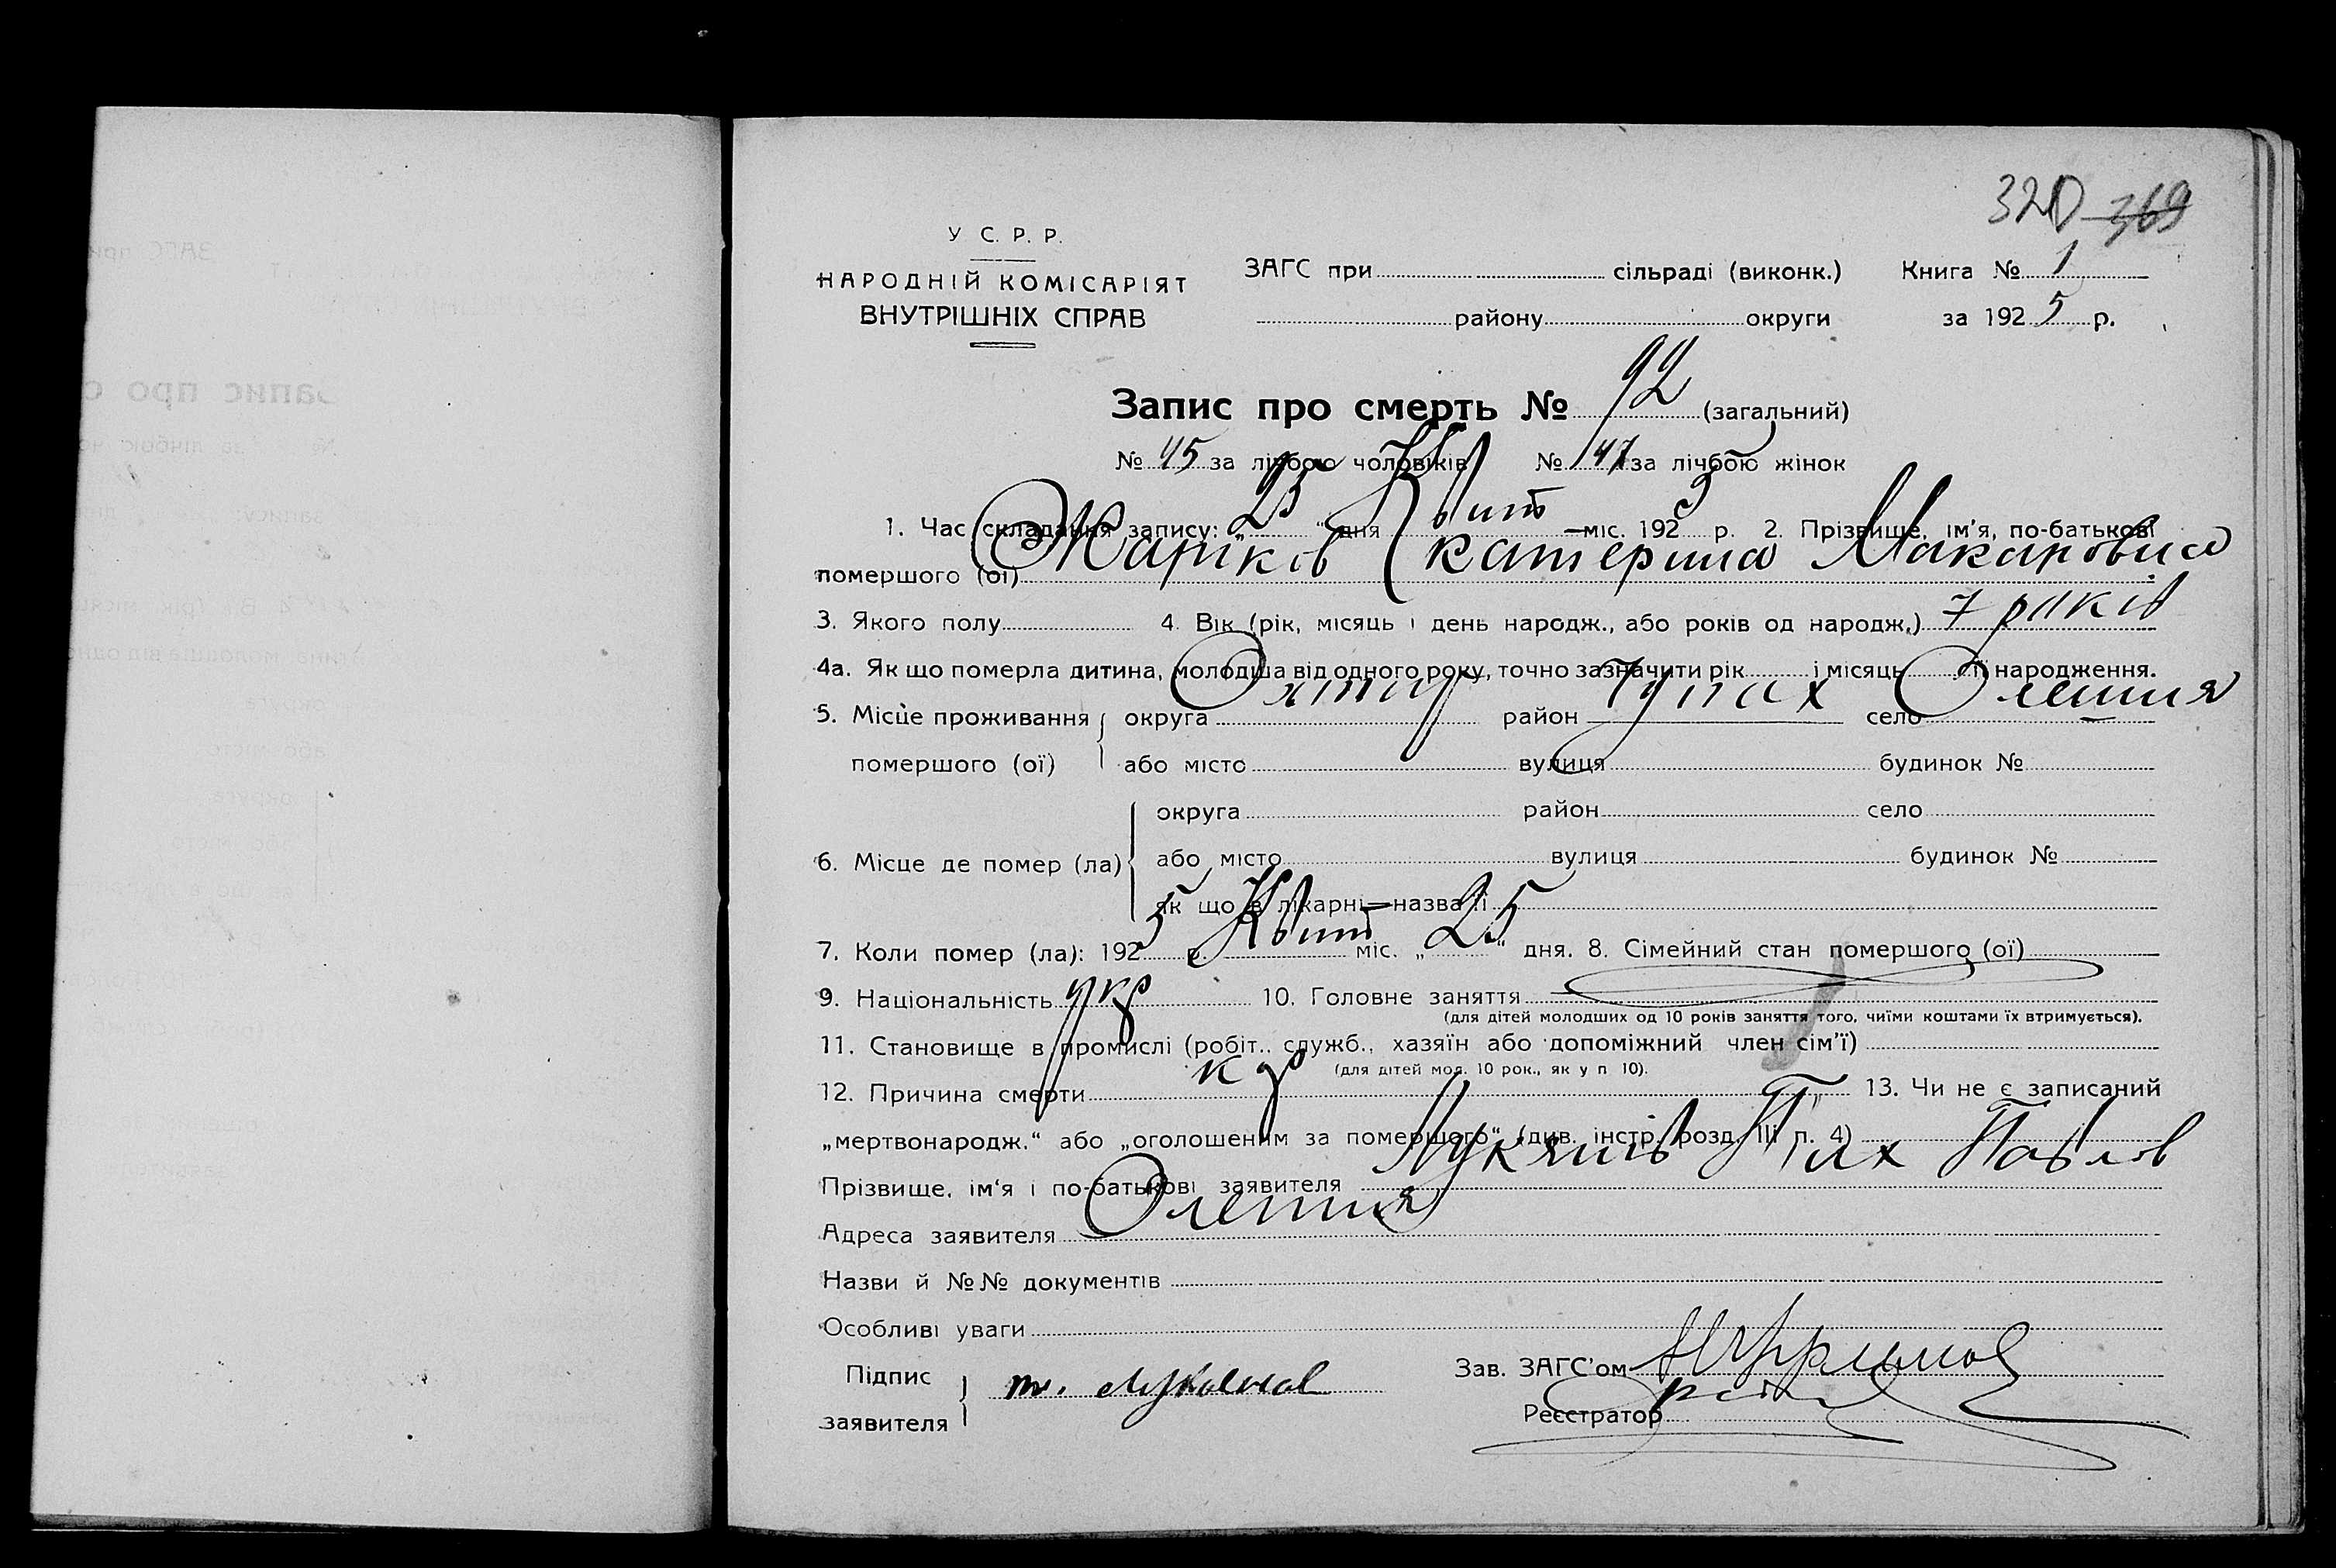 320 369
У С. Р. Р.
НАРОДНІЙ КОМІСАРІЯТ
ВНУТРІШНІХ СПРАВ
ЗАГС при сільраді (виконк.) Книга № 1
району округи за 1925 р.
Запис про смерть № 92 (загальний)
№ 45 за лічбою чоловіків № 47 за лічбою жінок
1. Час складання запису: „25“ дня Квит —міс. 1925 р. 2. Прізвище, ім'я, по-батькові
помершого (ої) Жарків Катерина Макаровна
3. Якого полу 4. Вік (рік, місяць і день народж., або років од народж.) 7 років
4а. Як що померла дитина, молодша від одного року, точно зазначити рік і місяць її народження.
5. Місце проживання округа Охтир район Чупах село Олешня
помершого (ої) або місто вулиця будинок №
округа район село
6. Місце де помер (ла) або місто вулиця будинок №
як що в лікарні—назва її
7. Коли помер (ла): 1925 р. Квит міс. „25“ дня. 8. Сімейний стан помершого (ої)
9. Національність укр 10. Головне заняття
(для дітей молодших од 10 років заняття того, чиїми коштами їх втримується).
11. Становище в промислі (робіт., служб., хазяїн або допоміжний член сім'ї)
(для дітей мол. 10 рок., як у п 10).
12. Причина смерти кор 13. Чи не є записаний
„мертвонародж.“ або „оголошеним за помершого“ (див. інстр. розд. III п. 4)
Прізвище, ім'я і по-батькові заявителя Лукянів Тих Павлов
Адреса заявителя Олешня
Назви й №№ документів
Особливі уваги
Підпис
заявителя т. Лукянов
Зав. ЗАГС'ом
Реєстратор